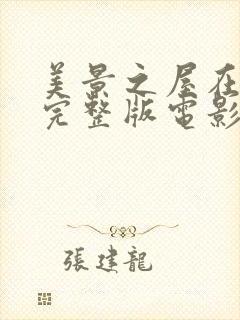 美景之屋在
完整版電影
張建龍